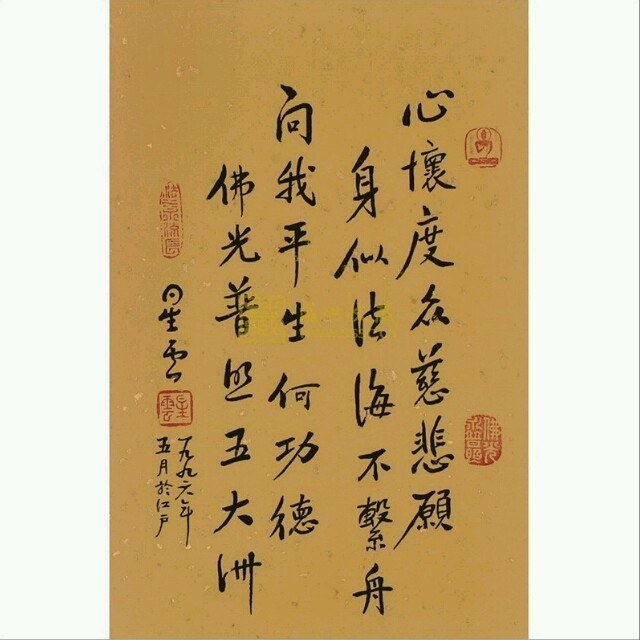 心懷度众慈悲願
身似法海不繫舟
问我平生何功德
佛光普照五大洲
星雲
一九九六年
五月於江戶
佛光
星雲